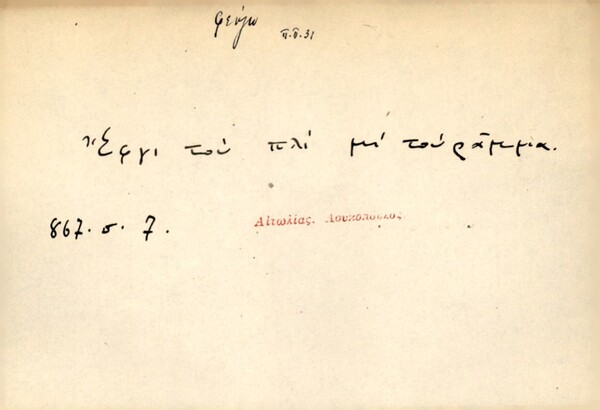 φεύγω
π.δ. 31
Ἔφγι τοὺ πλὶ μὶ τοὺ ράμμα.
867. σ. 7.
Αἰτωλίας. Λουκόπουλος